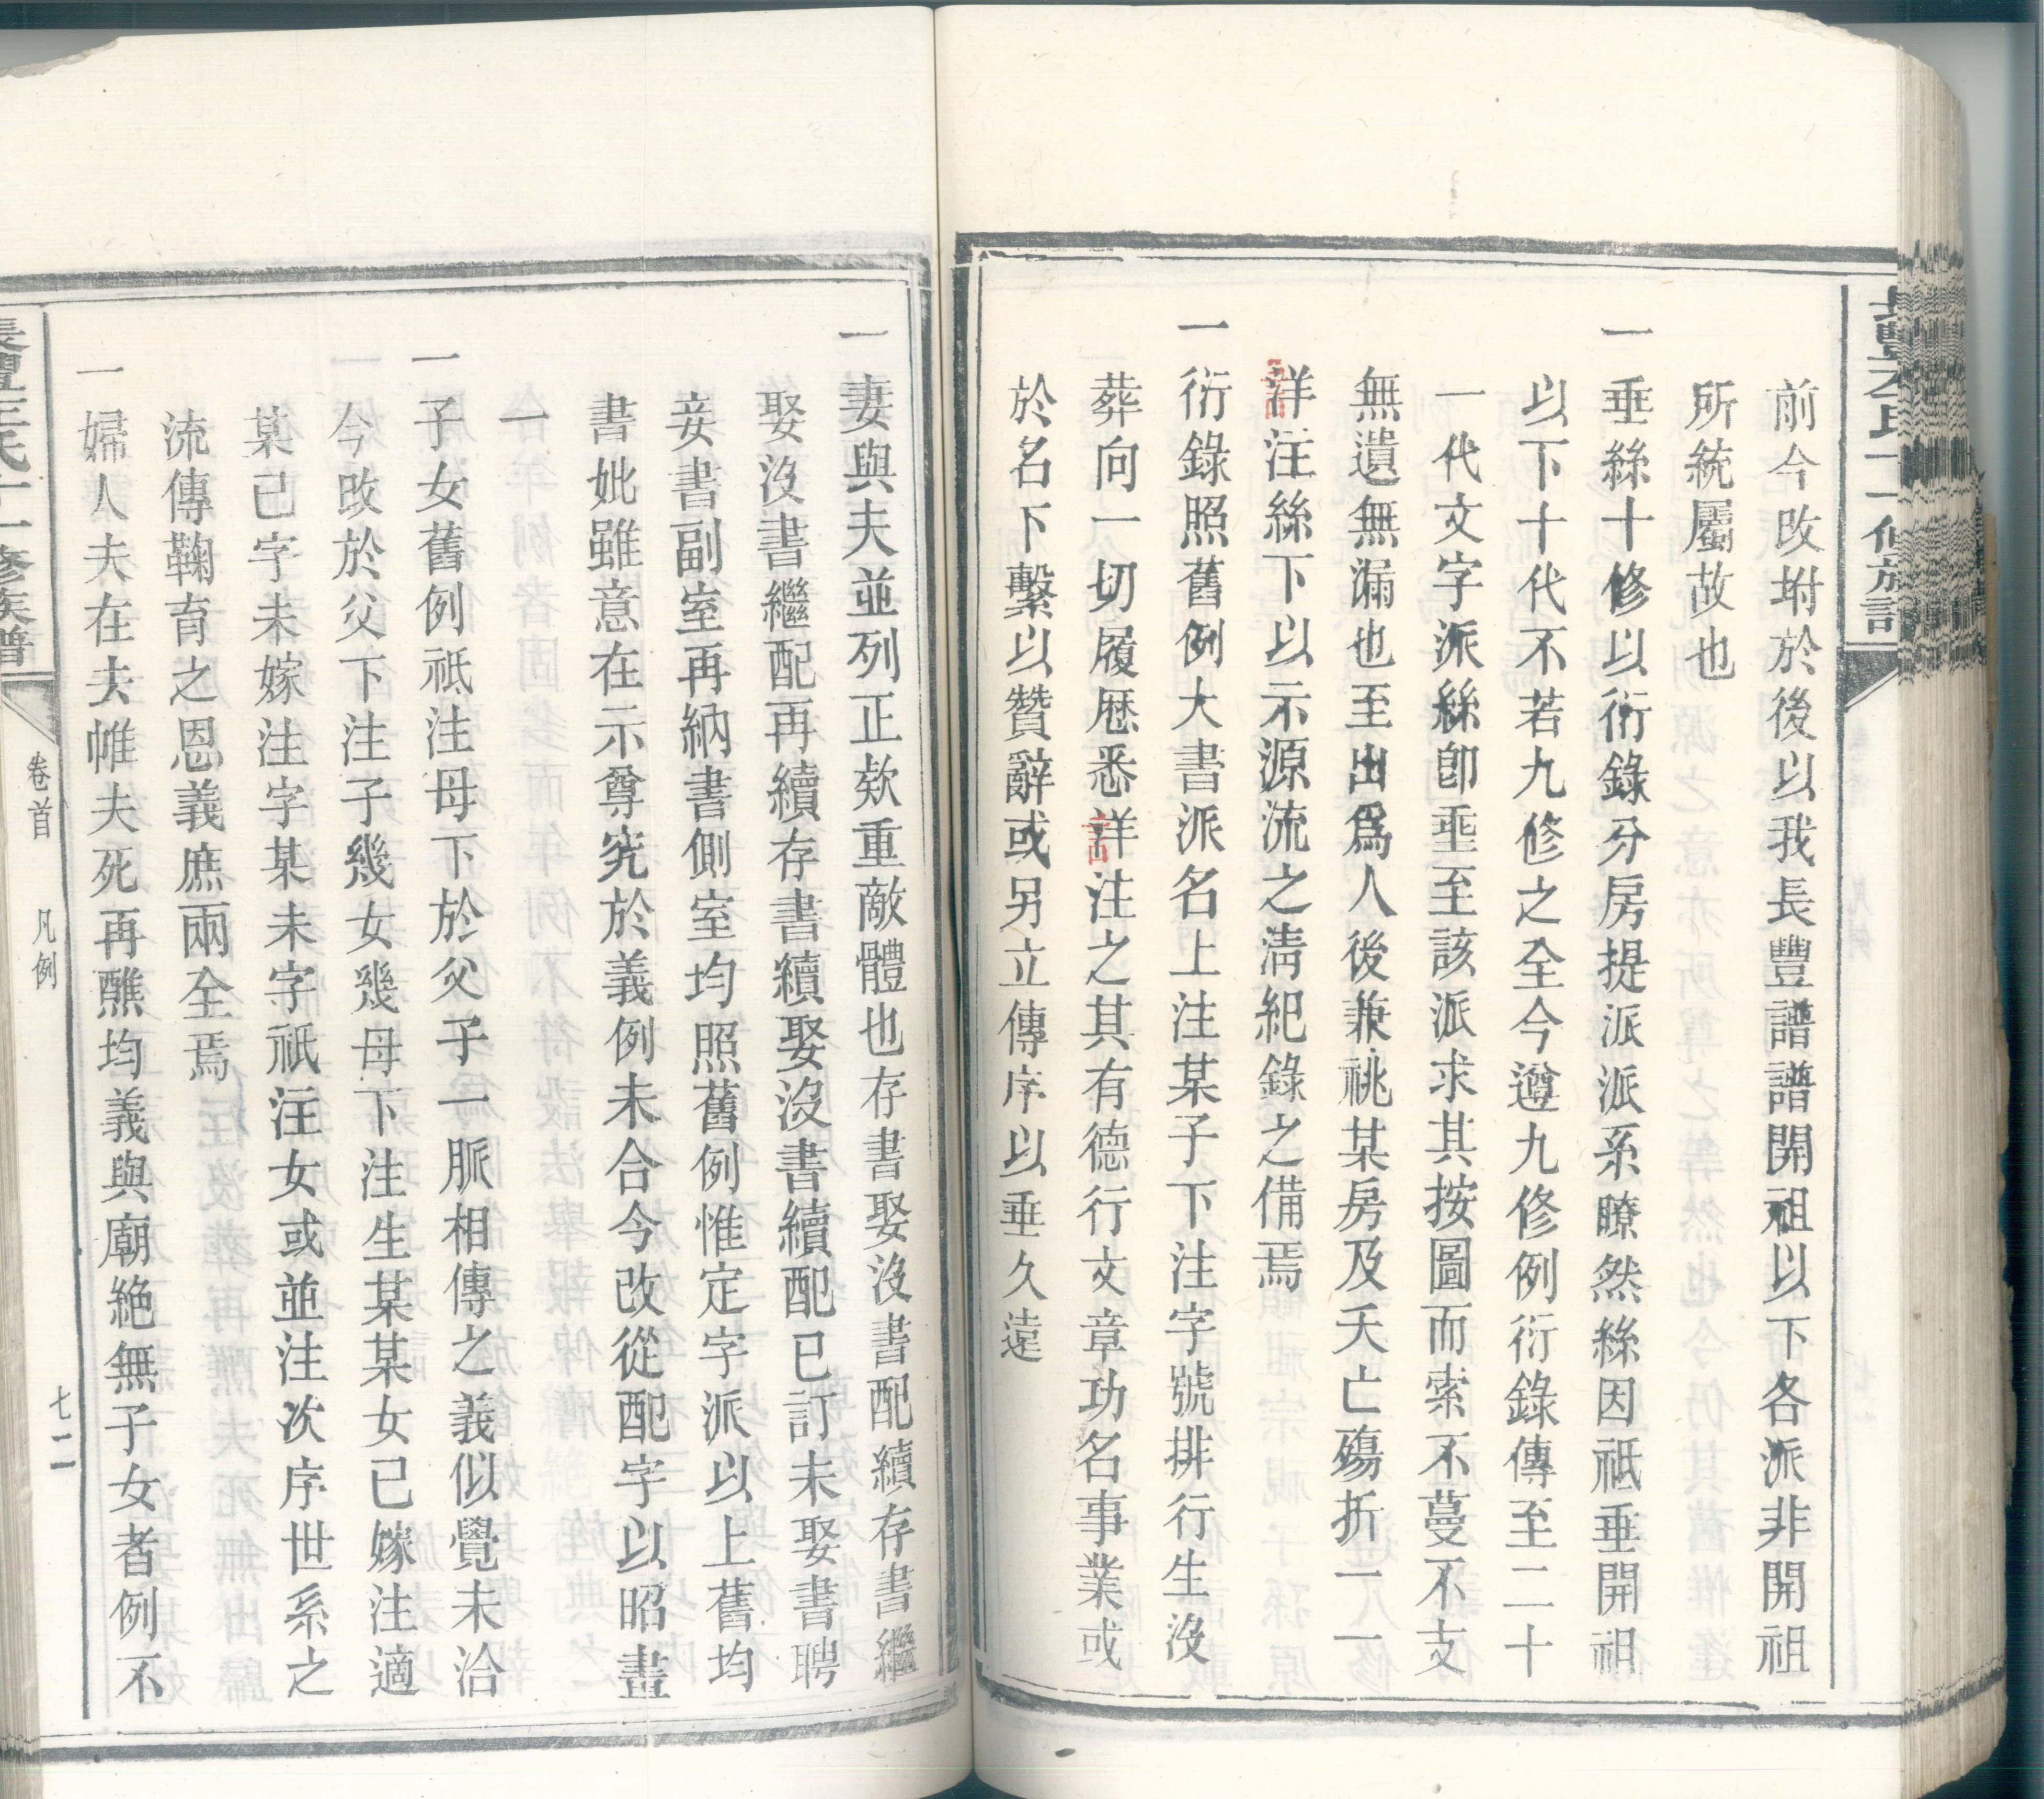 前今改坿於後以我長豐譜譜開祖以下各派非開祖
所統屬故也
一垂絲十修以衍錄分房提派派系瞭然絲因祗垂開祖
以下十代不若九修之全今遵九修例衍錄傳至二十
一代文字派絲卽垂至該派求其按圖而索不蔓不支
無遺無漏也至出爲人後兼祧某房及夭亡殤折一一
詳注絲下以示源流之淸紀錄之備焉
一衍錄照舊例大書派名上注某子下注字號排行生沒
葬向一切履歷悉詳注之其有德行文章功名事業或
於名下繫以贊辭或另立傳序以垂久遠
一妻與夫並列正欸重敵體也存書娶沒書配續存書繼
娶沒書繼配再續存書續娶沒書續配已訂未娶書聘
妾書副室再納書側室均照舊例惟定字派以上舊均
書妣雖意在示尊究於義例未合今改從配字以昭畫
一
一子女舊例祗注母下於父子一脈相傳之義似覺未洽
今改於父下注子幾女幾母下注生某某女已嫁注適
某已字未嫁注字某未字祇注女或並注次序世系之
流傳鞠育之恩義庶兩全焉
一婦人夫在去帷夫死再醮均義與廟絕無子女者例不
長豐李氏十一修族譜
卷首
凡例
七二